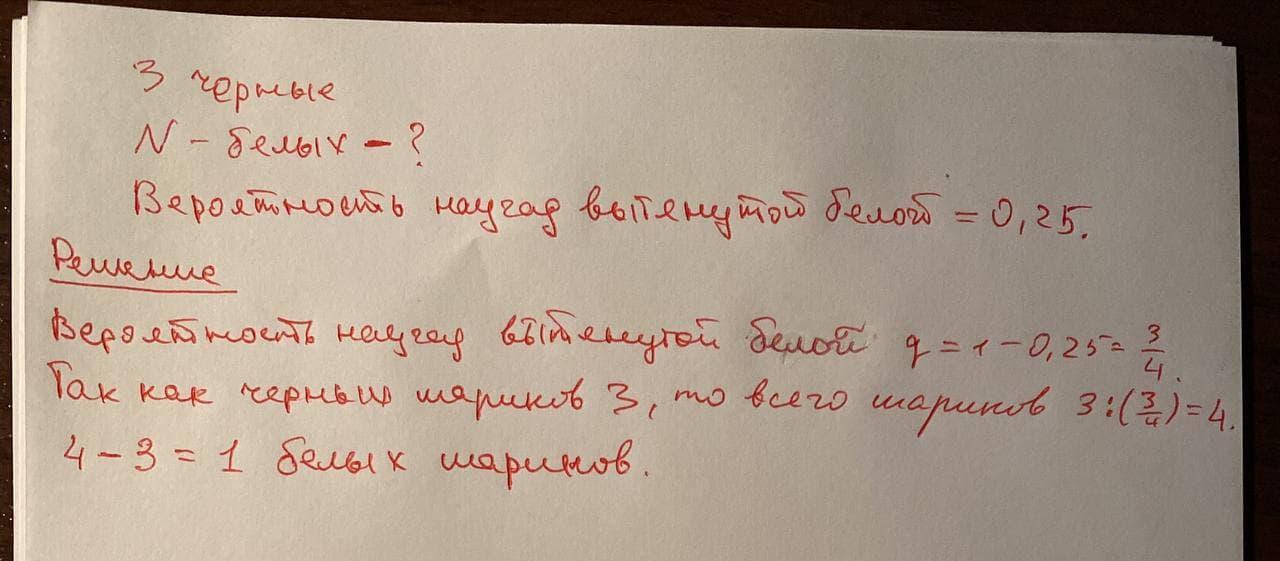 3 черные
N - белых - ?
Вероятность наугад вытянутой белой = 0,25.
Решение
Вероятность наугад вытянутой белой q = 1 - 0,25 = 3/4.
Так как черных шариков 3, то всего шариков 3:(3/4)=4.
4 - 3 = 1 белых шариков.